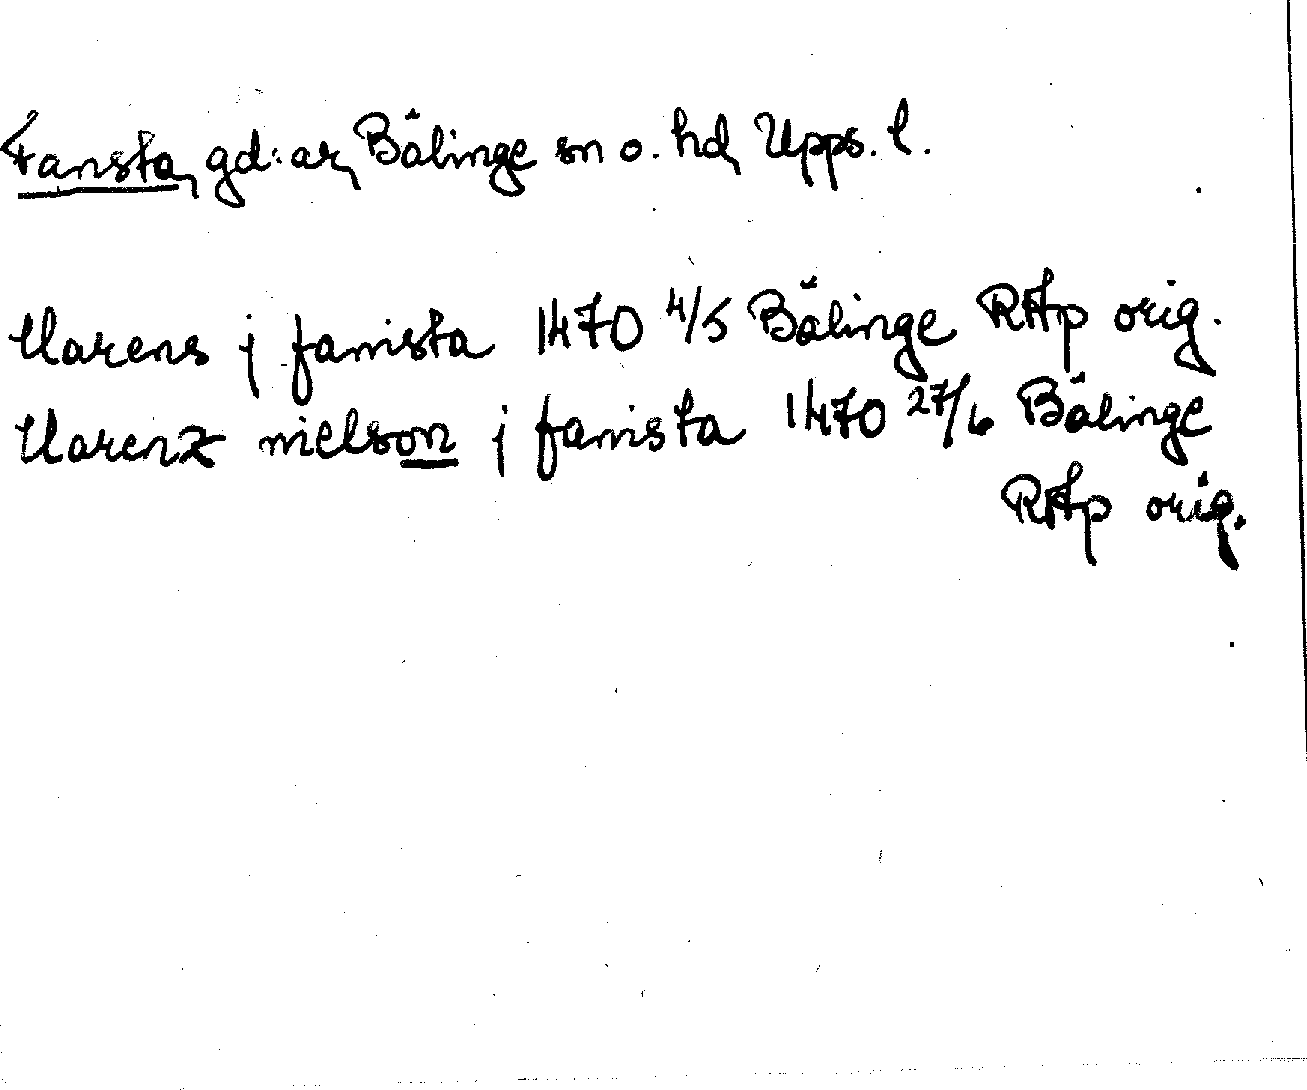 Fansta, gd:ar, Bälinge sn o. hd, Upps. l.
Clarens j famsta 1470 4/5 Bälinge RAp orig.
Clarenz nielson j famsta 1470 27/6 Bälinge
RAp orig.